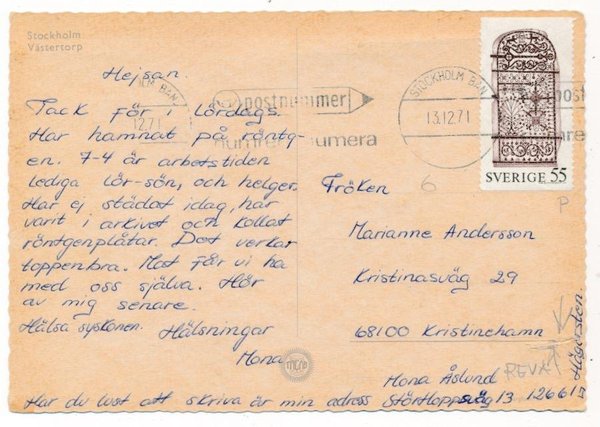 Stockholm
Västertorp
Hejsan.
Tack för i lördags.
Har hamnat på röntg-
en. 7-4 är arbetstiden
lediga lör-sön, och helger.
Har ej städat idag, har
varit i arkivet och kollat
röntgenplåtar. Det verkar
toppenbra. Mat får vi ha
med oss själva. Hör
av mig senare.
Hälsa syskonen. Hälsningar
Mona
Har du lust att skriva är min adress
postnummer
STOCKHOLM BAN
13.12.71
SVERIGE 55
6
P
Fröken
Marianne Andersson
Kristinasväg 29
68100 Kristinehamn
REVA
Mona Åslund
Störtloppsväg 13 12661
Hägersten.